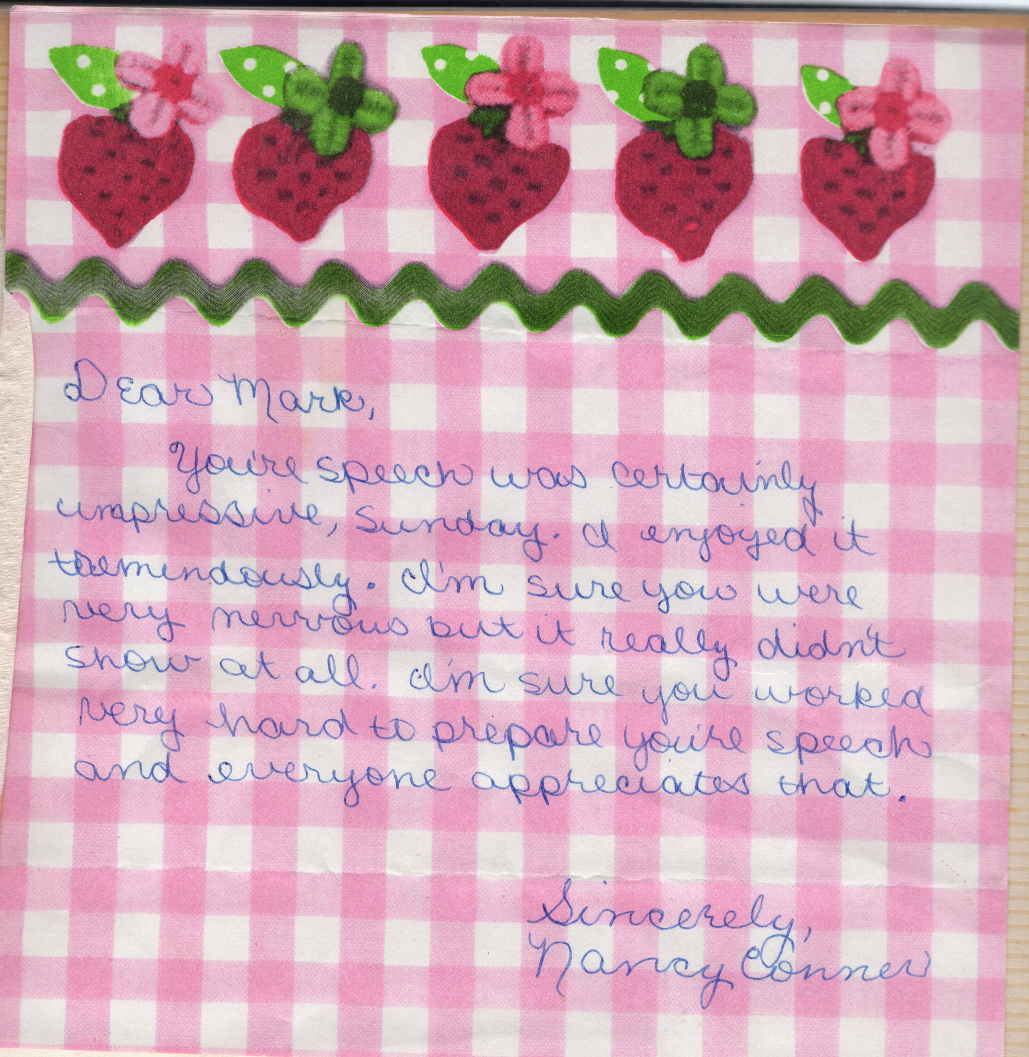 Dear Mark,
You're speech was certainly
impressive, Sunday. I enjoyed it
tremendously. I'm sure you were
very nervous but it really didn't
show at all. I'm sure you worked
very hard to prepare you're speech
and everyone appreciates that.
Sincerely,
Nancy Conner